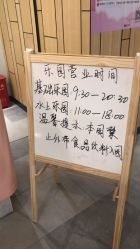 乐园营业时间
基础乐园:9:30-20:30
水上乐园:11:00-18:00
温馨提示:本园禁
止外带食品饮料入园